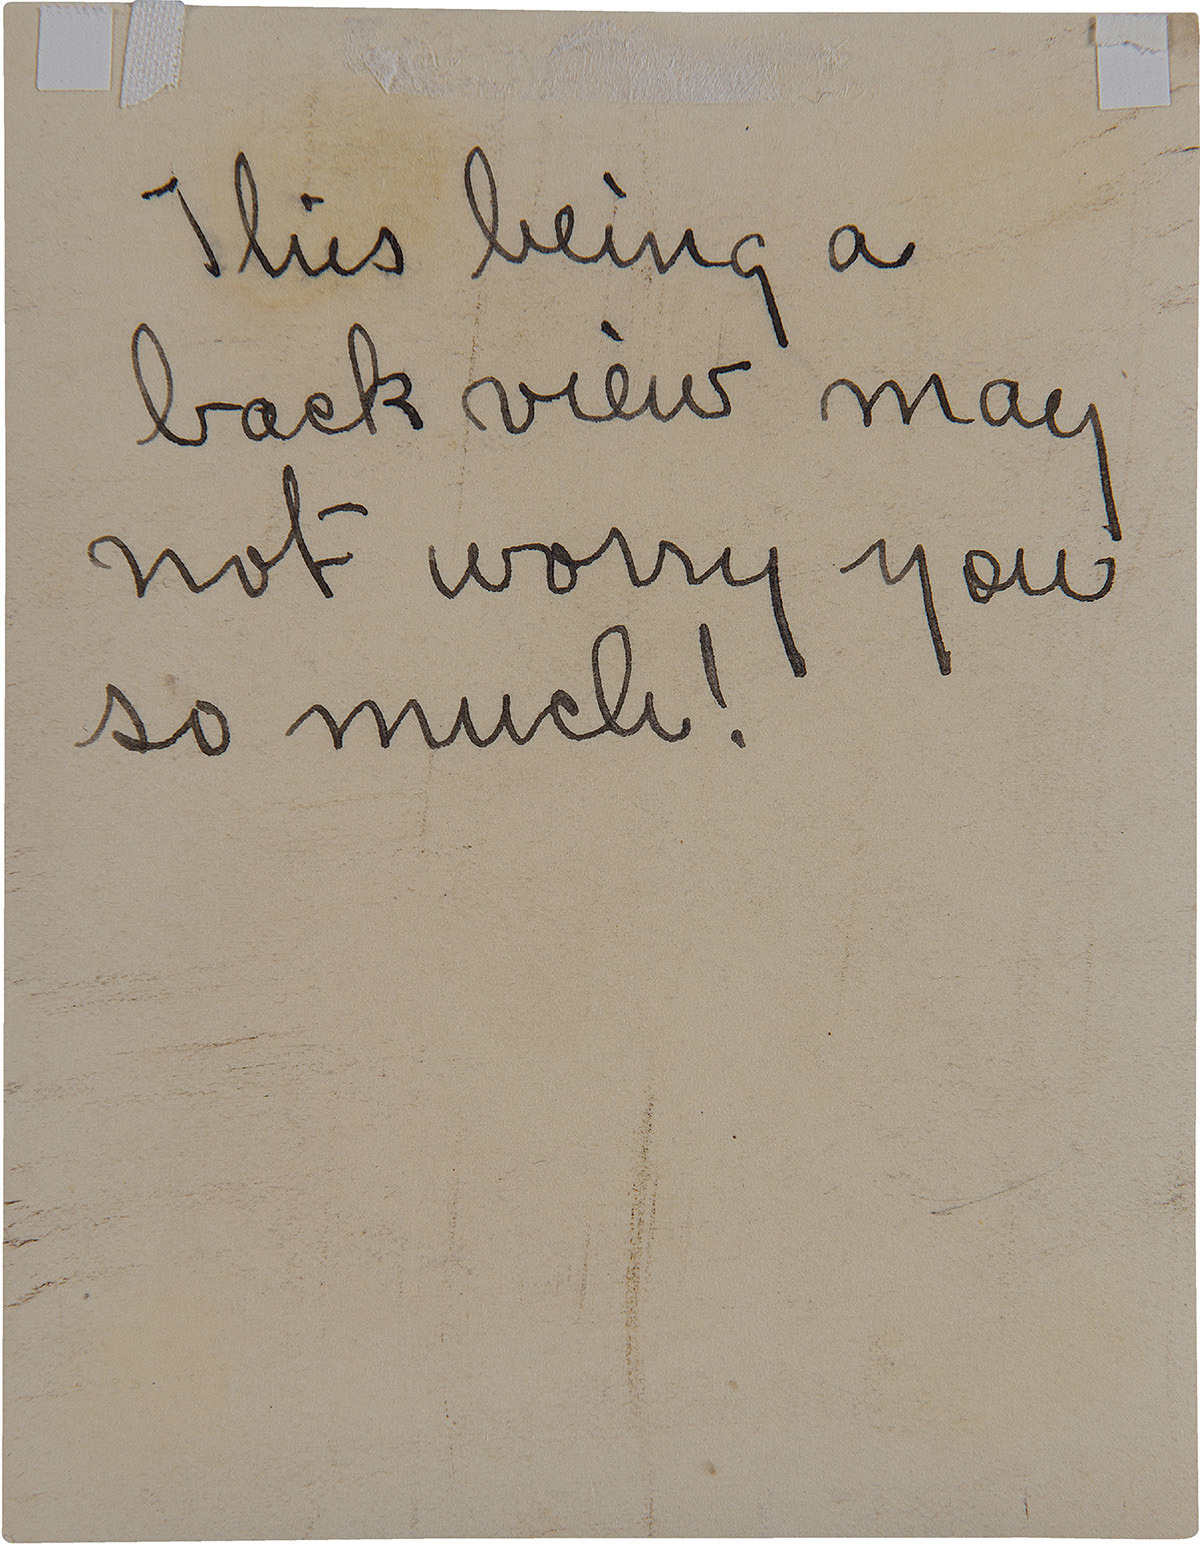 This being a
back view may
not worry you
so much!